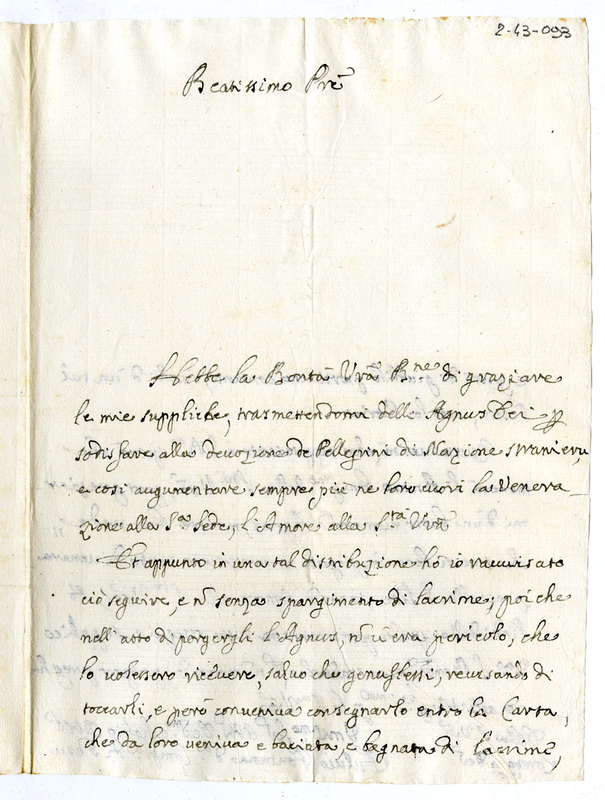 2-43-093
Beatissimo Prē
Hebbe la Bontà Vrā B.ne di graziare
le mie suppliche, trasmettendomi delli Agnus Dei p
sodisfare alla devozione de Pellegrini di Nazione straniera,
e cosi augumentare sempre più ne loro cuori la Venera_
zione alla S.a Sede, l'Amore alla S.ta Vrā
Et appunto in una tal distribuzione hò io ravvisato
ciò seguire, e nō senza spargimento di lacrime; poi che
nell'atto di porgergli l'Agnus, nō v'era pericolo, che
lo volessero ricevere, salvo che genuflessi, recusando di
toccarli, e però conveniva consegnarlo entro la Carta,
che da loro veniva e baciata, e bagnata di lacrime,